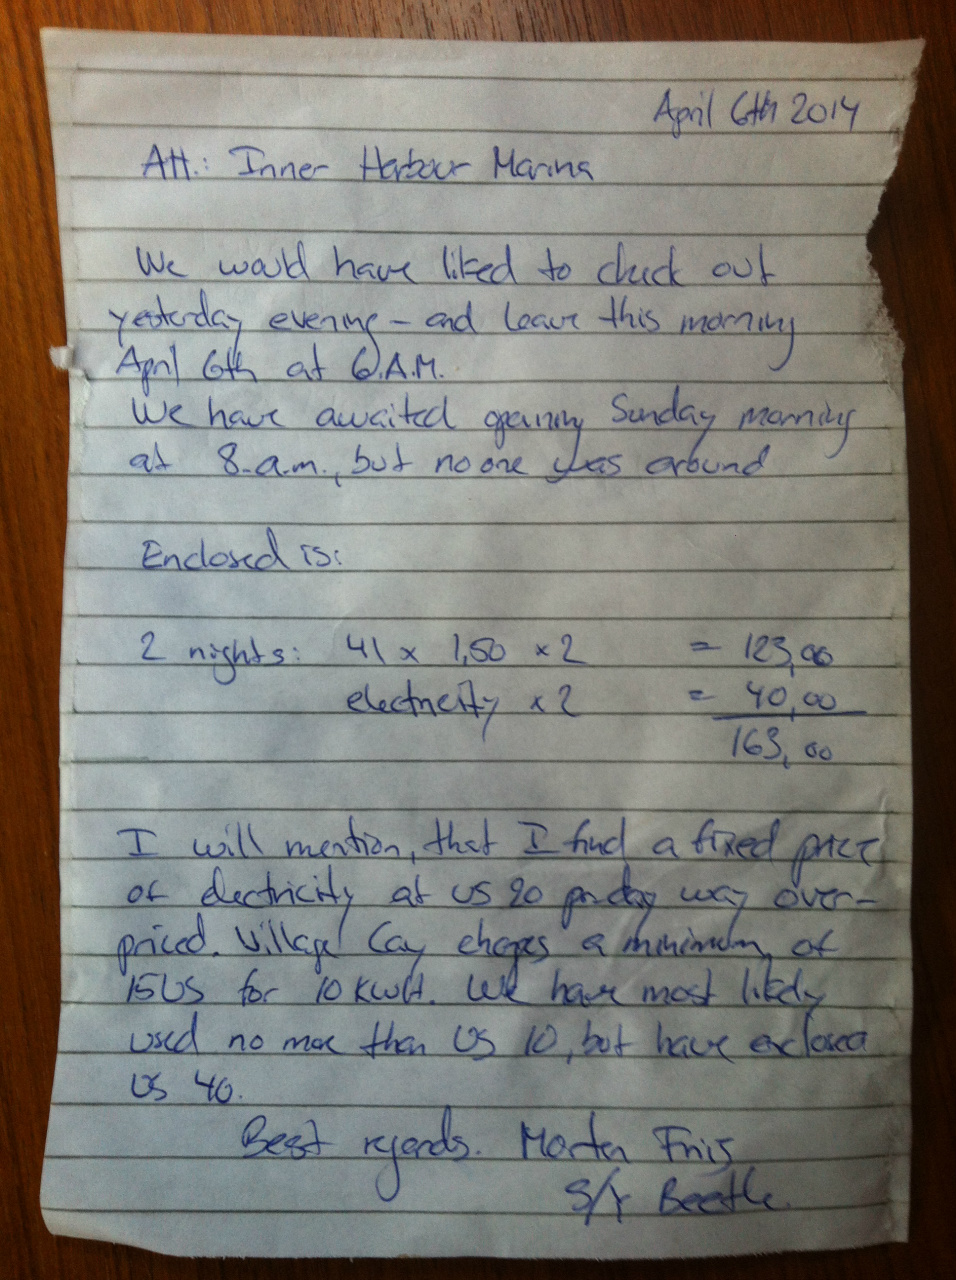 April 6th 2014
Att.: Inner Harbour Marina
We would have liked to check out
yesterday evening - and leave this morning
April 6th at 6.A.M.
We have awaited opening Sunday morning
at 8.a.m., but no one was around
Enclosed is:
2 nights: 41 x 1,50 x 2 = 123,00
electricity x 2 = 40,00
163,00
I will mention, that I find a fixed price
of electricity at US 20 pr day way over-
priced. Village Cay charges a minimum of
15 US for 10 KWH. We have most likely
used no more than US 10, but have enclosed
US 40.
Best regards. Morten Friis
S/Y Beetle